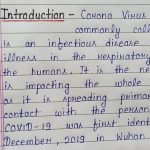 Introduction - Corona Virus
commonly call
is an infectious disease
illness in the respirator
the humans. It is the ne
is impacting the whole
as it is spreading primar
contact with the person
COVID-19 was first ident
December, 2019 in Wuhan